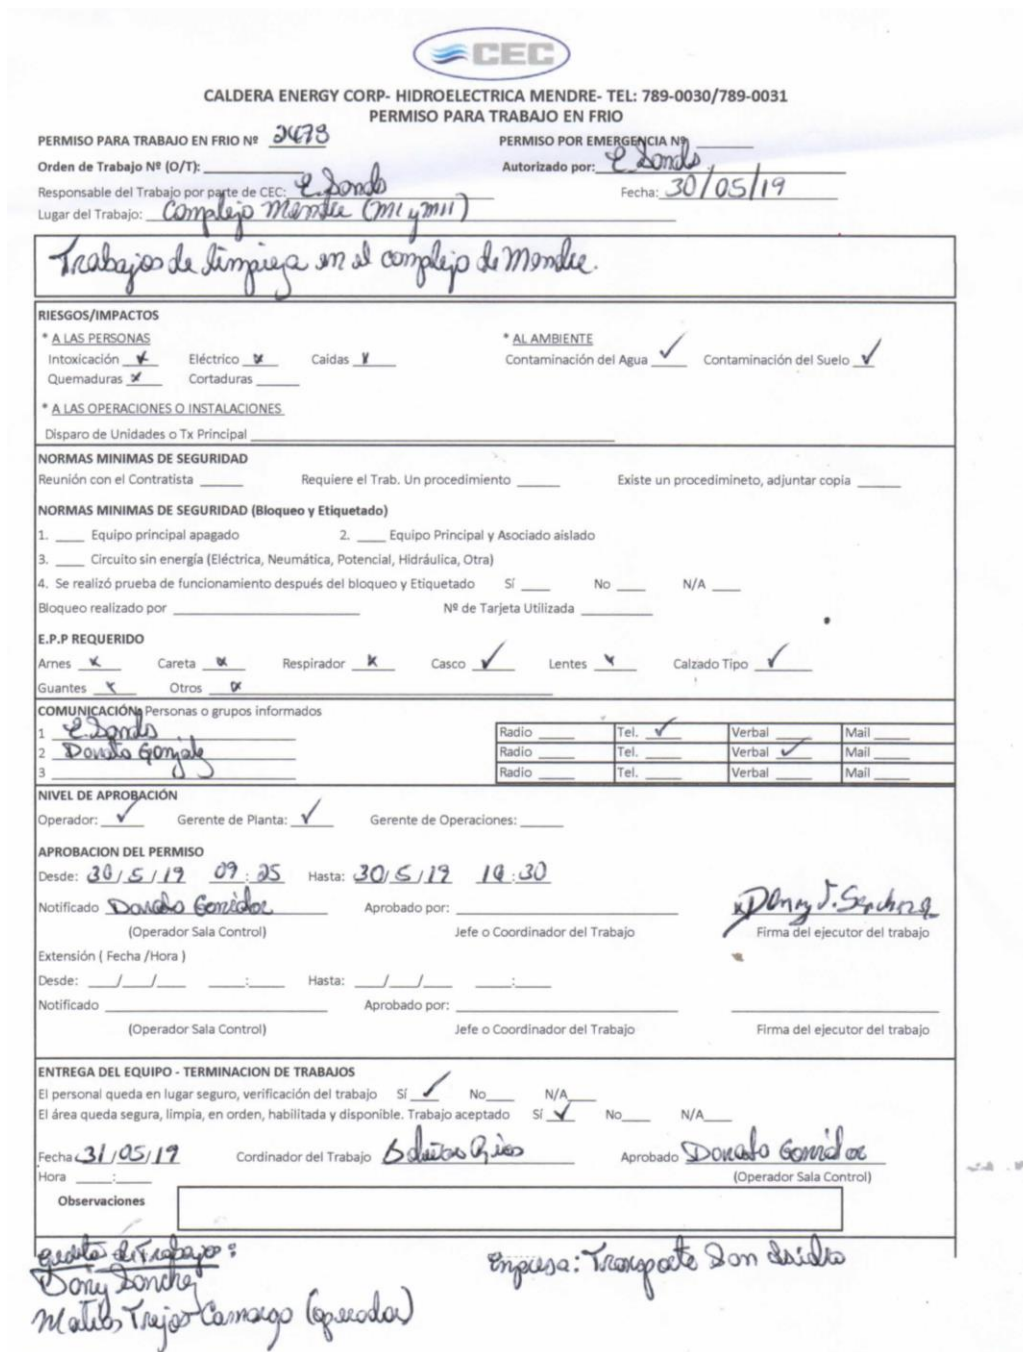 CEC
CALDERA ENERGY CORP- HIDROELECTRICA MENDRE- TEL: 789-0030/789-0031
PERMISO PARA TRABAJO EN FRIO
PERMISO PARA TRABAJO EN FRIO Nº 2478 PERMISO POR EMERGENCIA Nº
Orden de Trabajo Nº (O/T): Autorizado por:
Responsable del Trabajo por parte de CEC: Fecha: 30/05/19
Lugar del Trabajo: Complejo Mendre (MI y MII)
Trabajos de limpieza en el complejo de Mendre.
RIESGOS/IMPACTOS
* A LAS PERSONAS * AL AMBIENTE
Intoxicación x Eléctrico x Caidas x Contaminación del Agua ✓ Contaminación del Suelo ✓
Quemaduras x Cortaduras
* A LAS OPERACIONES O INSTALACIONES
Disparo de Unidades o Tx Principal
NORMAS MINIMAS DE SEGURIDAD
Reunión con el Contratista Requiere el Trab. Un procedimiento Existe un procedimineto, adjuntar copia
NORMAS MINIMAS DE SEGURIDAD (Bloqueo y Etiquetado)
1. Equipo principal apagado 2. Equipo Principal y Asociado aislado
3. Circuito sin energía (Eléctrica, Neumática, Potencial, Hidráulica, Otra)
4. Se realizó prueba de funcionamiento después del bloqueo y Etiquetado Sí No N/A
Bloqueo realizado por Nº de Tarjeta Utilizada
E.P.P REQUERIDO
Arnes x Careta x Respirador x Casco ✓ Lentes x Calzado Tipo ✓
Guantes x Otros x
COMUNICACIÓN: Personas o grupos informados
1 Radio Tel. ✓ Verbal Mail
2 Donato Gonzalez Radio Tel. Verbal ✓ Mail
3 Radio Tel. Verbal Mail
NIVEL DE APROBACIÓN
Operador: ✓ Gerente de Planta: ✓ Gerente de Operaciones:
APROBACION DEL PERMISO
Desde: 30/5/19 09:25 Hasta: 30/5/19 :30
Notificado Donato Aprobado por: Denny J.
(Operador Sala Control) Jefe o Coordinador del Trabajo Firma del ejecutor del trabajo
Extensión ( Fecha /Hora )
Desde: __/__/__ __:__ Hasta: __/__/__ __:__
Notificado Aprobado por:
(Operador Sala Control) Jefe o Coordinador del Trabajo Firma del ejecutor del trabajo
ENTREGA DEL EQUIPO - TERMINACION DE TRABAJOS
El personal queda en lugar seguro, verificación del trabajo Sí ✓ No N/A
El área queda segura, limpia, en orden, habilitada y disponible. Trabajo aceptado Sí ✓ No N/A
Fecha 31/05/19 Cordinador del Trabajo Rios Aprobado Donato
Hora __:__ (Operador Sala Control)
Observaciones
de Trabajo: Empresa: Transporte San Isidro
Sanchez
Matias Trejos Camargo (operador)